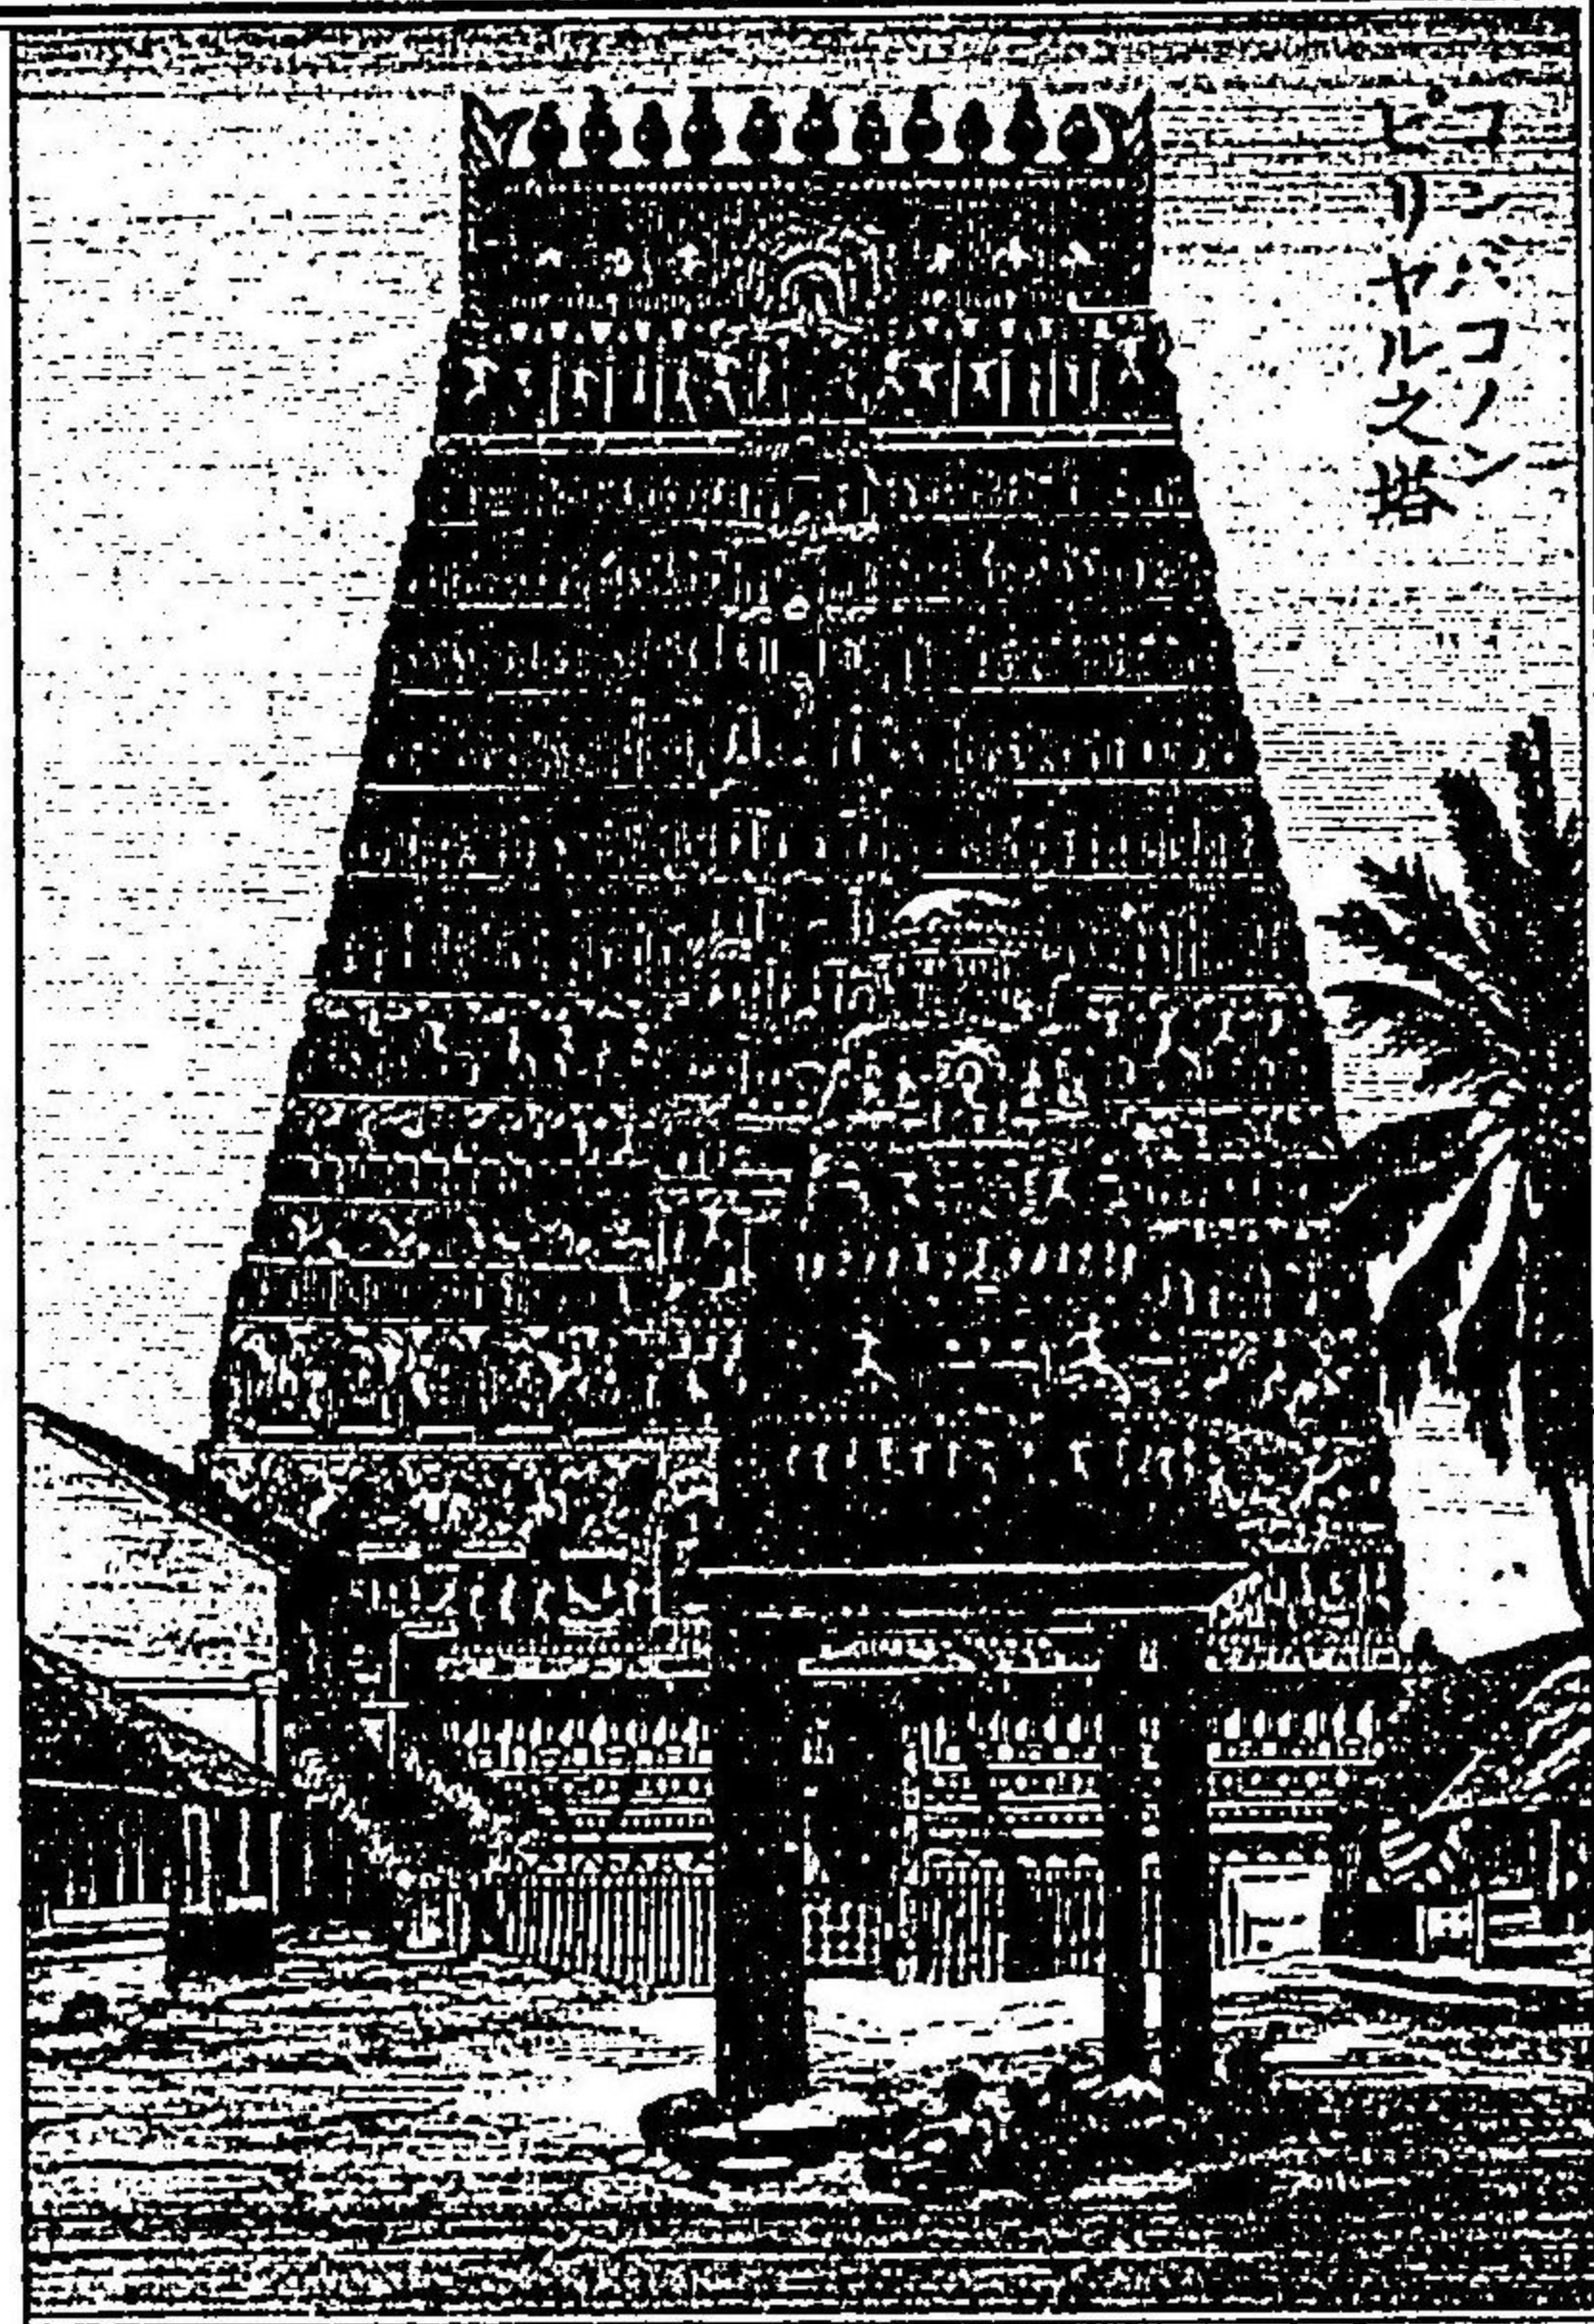 コンバコノン
ピリヤル之塔